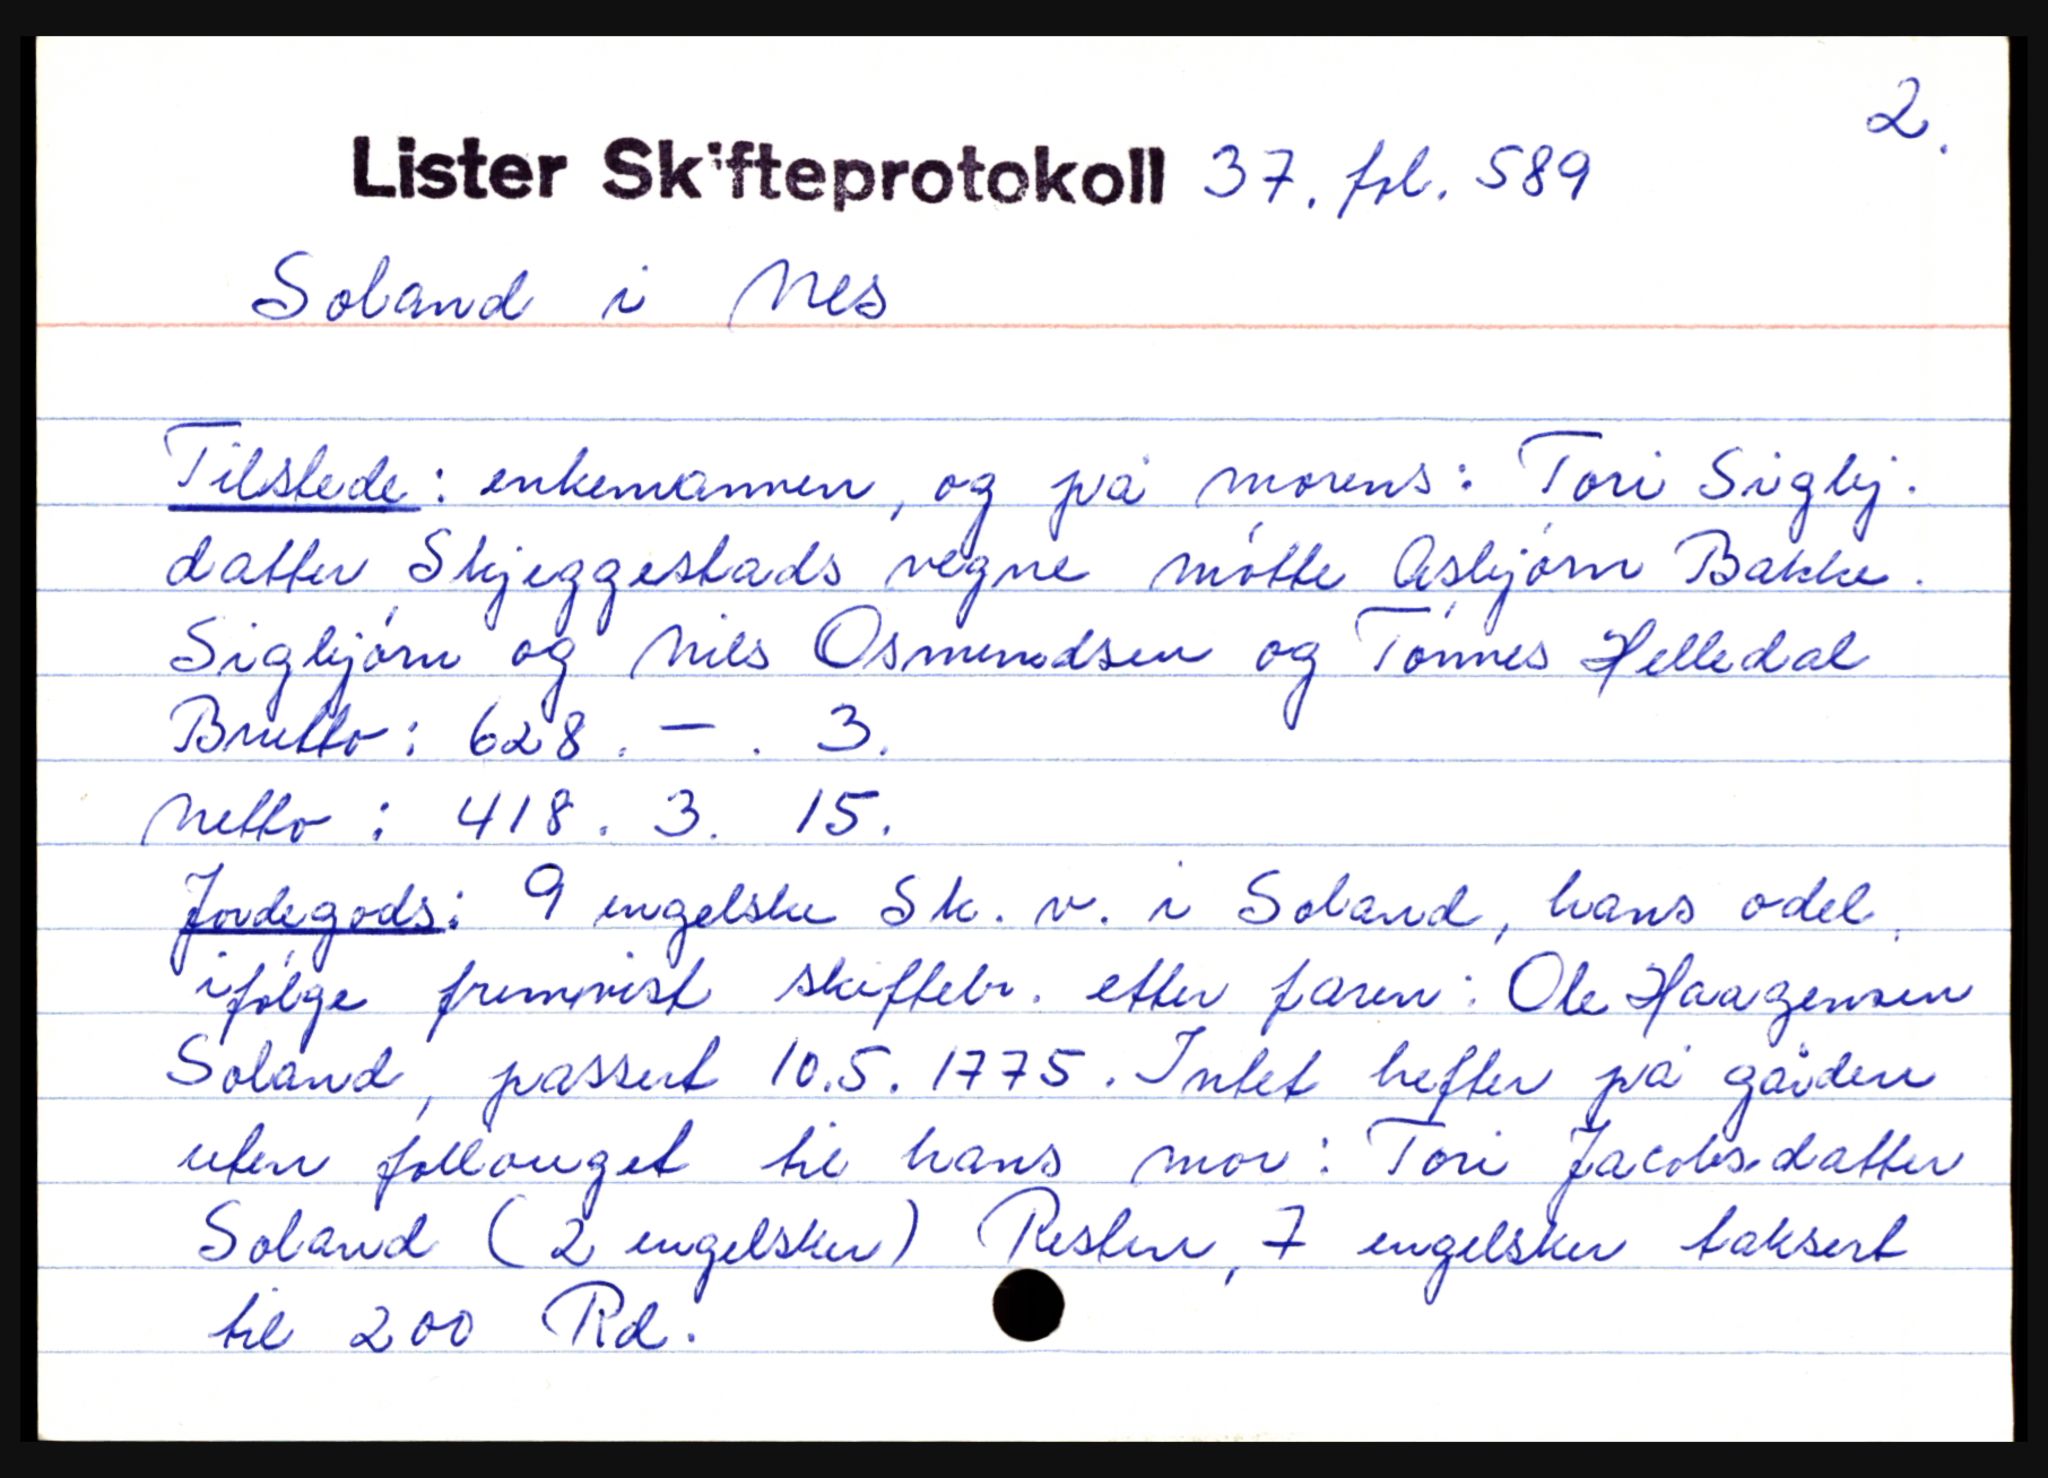 2.
Lister Skifteprotokoll 37. fol. 589
Soland i Nes
Tilstede: enkemannen, og på morens: Tori Sigbj.
datter Skjeggestads vegne møtte Asbjørn Bakke.
Sigbjørn og Nils Osmundsen og Tønnes Helledal
Brutto: 628. – . 3.
Netto : 418. 3. 15.
Jordegods: 9 engelske Sk. v. i Soland, hans odel,
ifølge fremvist skiftebr. etter faren: Ole Haagensen
Soland, passert 10.5.1775. Intet hefter på gården
uten follouget til hans mor: Tori Jacobsdatter
Soland (2 engelsker) Resten, 7 engelsker taksert
til 200 Rd.